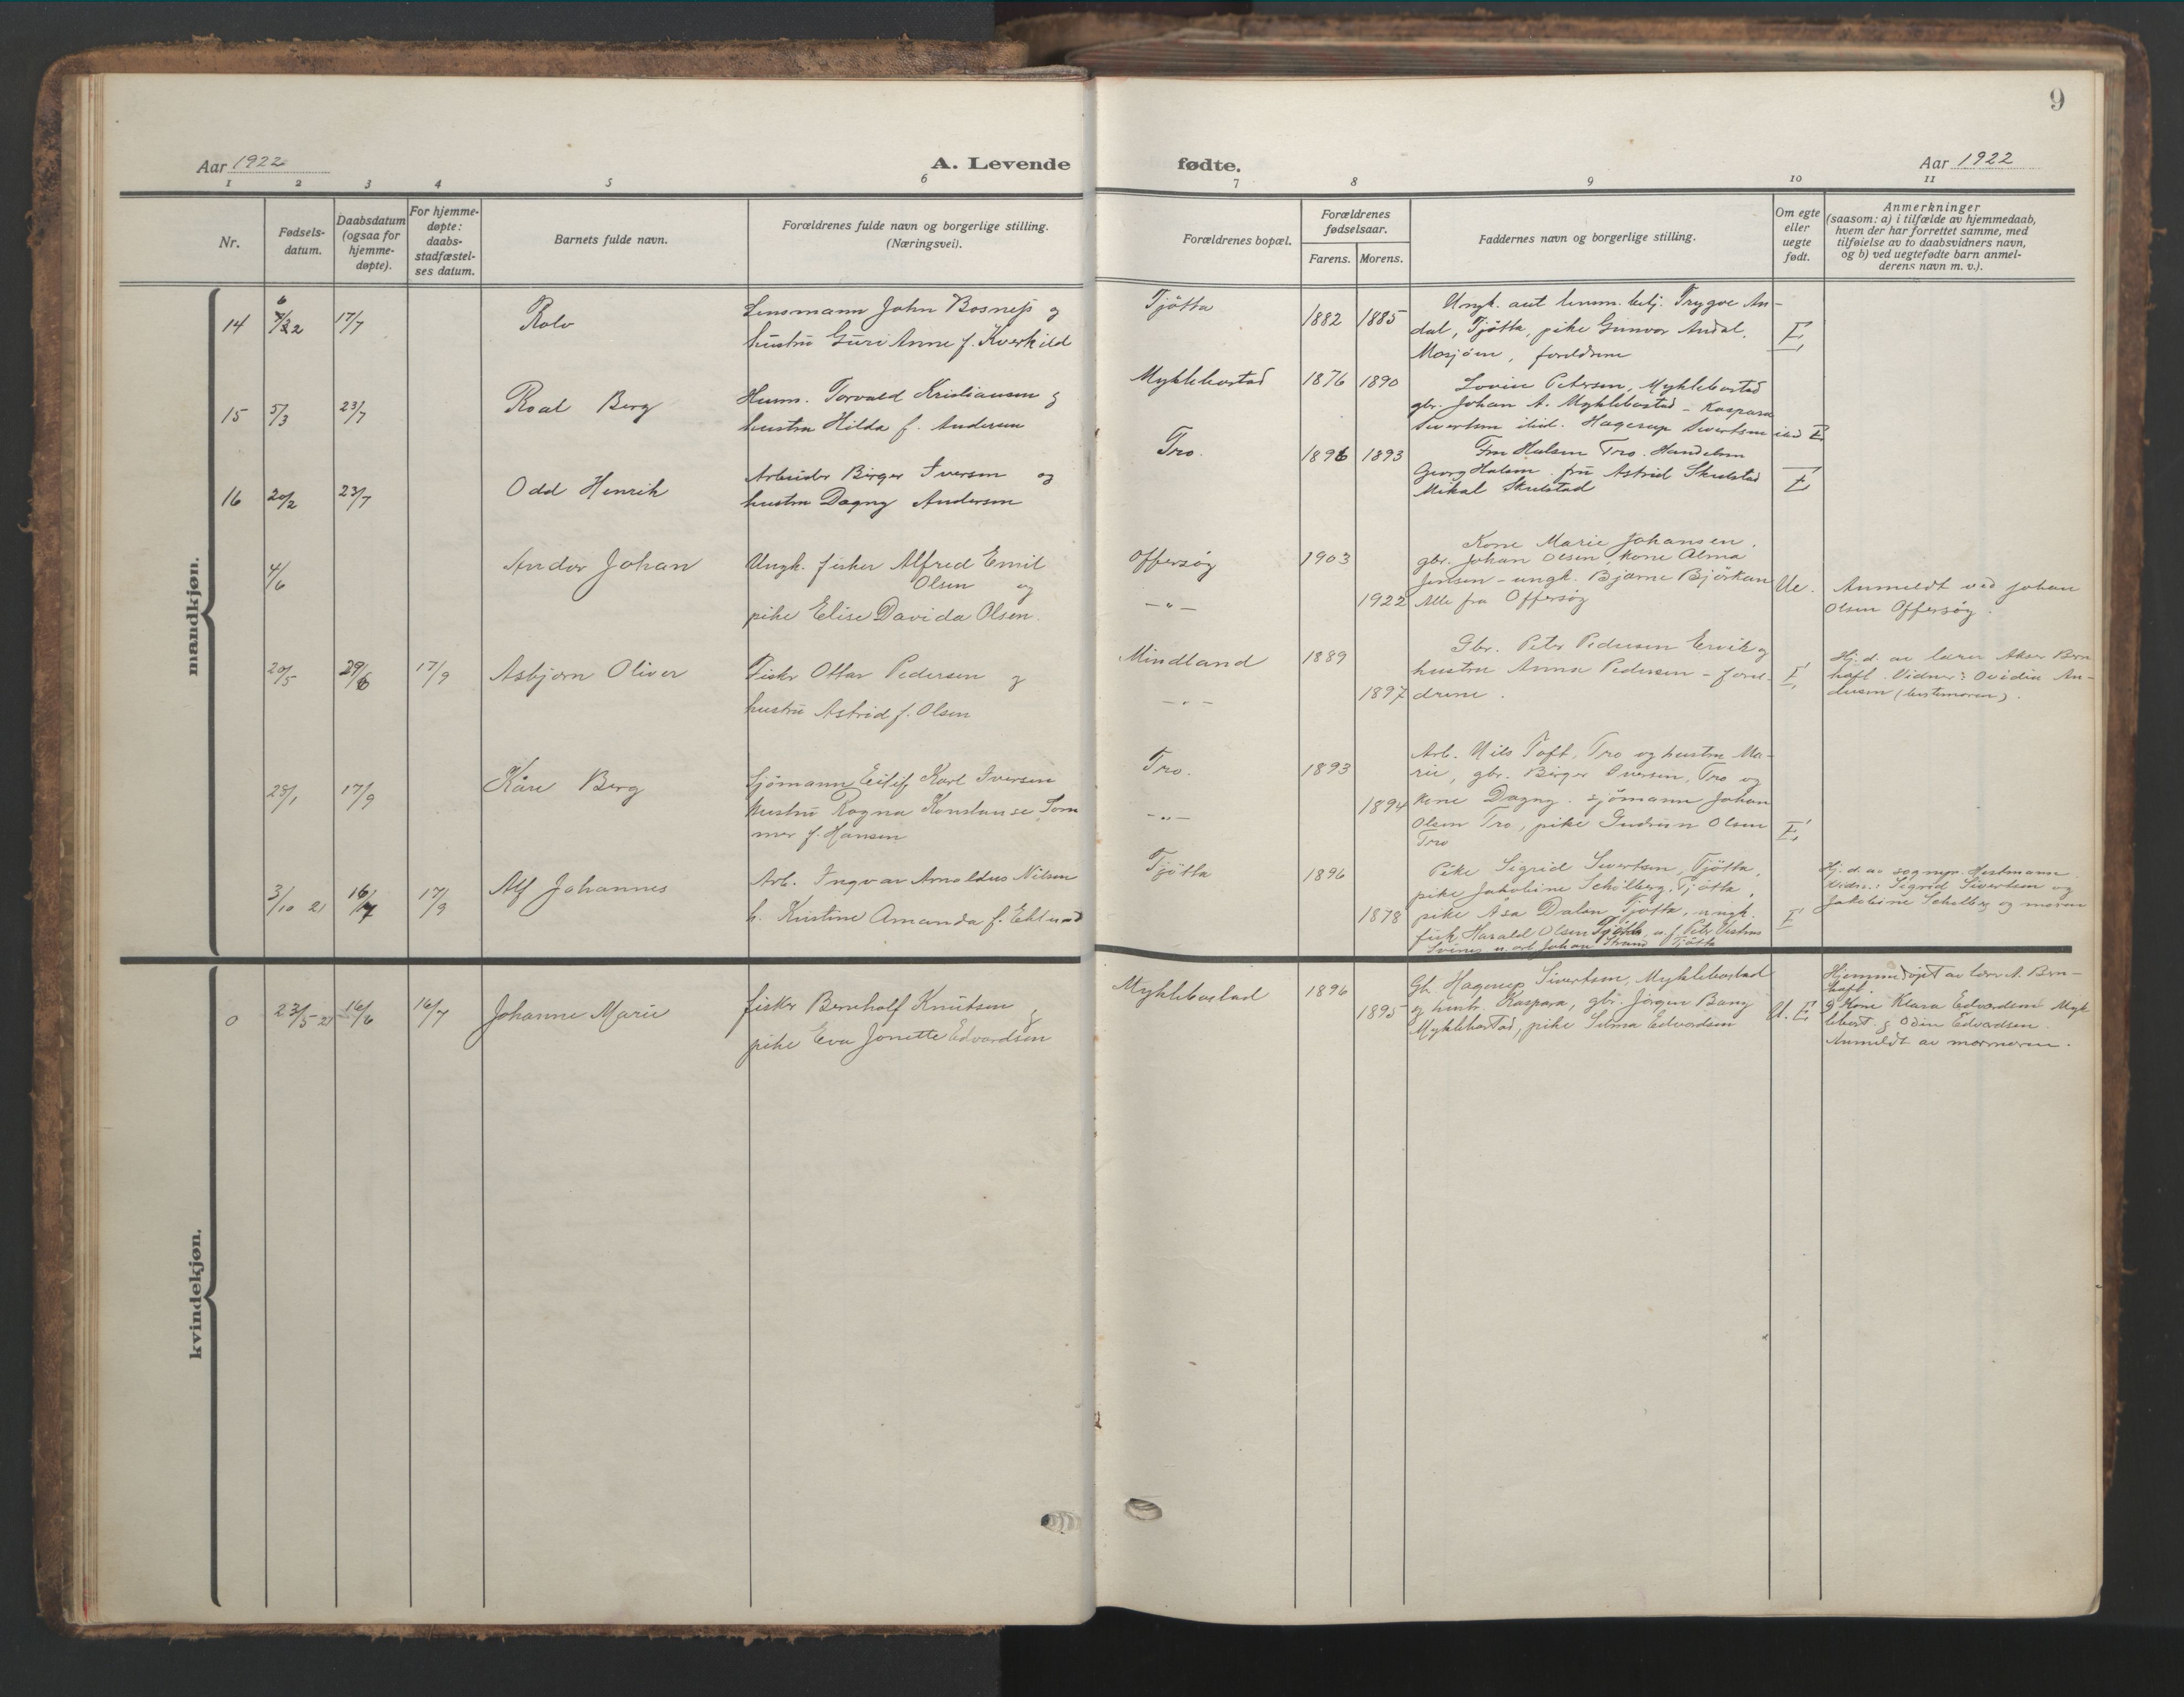 9
Aar 1922
A. Levende
fødte.
Aar 1922
1 2 3 4 5 6 7 8 9 10 11
Nr.
Fødsels-
datum.
Daabsdatum
(ogsaa for
hjemme-
døpte).
For hjemme-
døpte:
daabs-
stadfæstel-
ses datum.
Barnets fulde navn.
Forældrenes fulde navn og borgerlige stilling.
(Næringsvei).
Forældrenes bopæl.
Forældrenes
fødselsaar.
Farens. Morens.
Faddernes navn og borgerlige stilling.
Om egte
eller
uegte
født.
Anmerkninger
(saasom: a) i tilfælde av hjemmedaab,
hvem der har forrettet samme, med
tilføielse av to daabsvidners navn,
og b) ved uegtefødte barn anmel-
derens navn m. v.).
mandkjøn.
14 17/7 Rolv
Lensmann John Bosness og
hustru Guri Anne f. Kverkild
Tjötta
1882 1885
Ungk. aut lensm. betj. Trygve An-
dal, Tjötta, pike Gunvor Andal,
Mosjöen, foreldrene
E
15 5/3 23/7 Roal Berg
Husm. Torvald Kristiansen og
hustru Hilda f. Andersen
Myklebostad
1876 1890
Lovise Petersen, Myklebostad
gbr. Johan A. Myklebostad - Kaspara
Sivertsen ibid. Hagerup Sivertsen ibid
E
16 20/2 23/7 Odd Henrik
Arbeider Birger Iversen og
hustru Dagny Andersen
Tro.
1896 1893
Fru Halsen Tro. Handelsm
Georg Halsen. fru Astrid Skulstad
Mikal Skulstad
E
4/6 Andor Johan
Ungk. fisker Alfred Emil
Olsen og
pike Elise Davida Olsen.
Offersøy
-"-
1903
1922
Kone Marie Johansen,
gbr. Johan Olsen, kone Alma
Jensen - ungk. Bjarne Björkan
Alle fra Offersøy
Ue.
Anmeldt ved Johan
Olsen Offersøy.
20/5 29/6 17/9 Asbjørn Oliver
Fisker Ottar Pedersen og
hustru Astrid f. Olsen
Mindland
-"-
1889
1897
Gbr. Peter Pedersen Ervik og
hustru Anna Pedersen - forel-
drene.
E
Hj. d. av lærer Aker Bern
hoft. Vidner: Ovidia An-
dersen (bestemoren).
28/1 17/9 Kåre Berg
Sjömann Eilif Karl Iversen
hustru Ragna Konstanse Tom
mer f. Hansen
Tro.
-"-
1893
1894
Arb. Nils Toft, Tro og hustru Ma-
rie, gbr. Birger Iversen, Tro og
kone Dagny. sjömann Johan
Olsen Tro, pike Gudrun Olsen
Tro
E
3/10 21 17/9 Alf Johannes
Arb. Ingvar Arnoldus Nilsen
h. Kristine Amanda f. Eklund
Tjötta
1896
1878
Pike Sigrid Sivertsen, Tjötta,
pike Jakobine Schölberg, Tjötta,
pike Åsa Dalan, Tjötta, ungk.
fisk. Harald Olsen Tjötta, u. f. Peter
u. arb Johan Strand Tjötta
E
Hj. d. av sognepr. Hestmann.
Vidn.: Sigrid Sivertsen og
Jakobine Schølberg og moren
kvindekjøn.
0 23/5 21 16/6 16/7 Johanne Marie
fisker Bernholf Knutsen og
pike Eva Jonette Edvardsen
Myklebostad
1896
1895
Gb. Hagerup Sivertsen, Myklebostad
og hustr. Kaspara, gbr. Jörgen Bang
Myklebostad, pike Selma Edvardsen
U. E
Hjemmedöpt av lærer A. Bern-
hoft.
Kone Klara Edvardsen Myk
lebost. og Odin Edvardsen.
Anmeldt av mormoren.